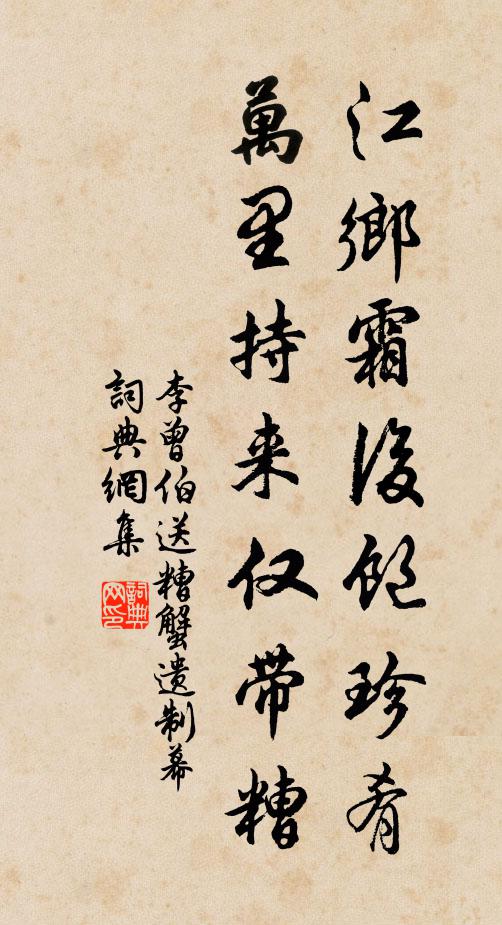 江鄉霜後飽珍肴
萬里持来仅带糟
李曾伯送糟蟹遺制幕
詞典網集
詞典网印